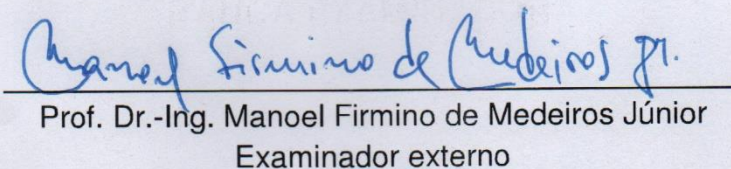 Manoel Firmino de Medeiros Jr.
Prof. Dr.-Ing. Manoel Firmino de Medeiros Júnior
Examinador externo